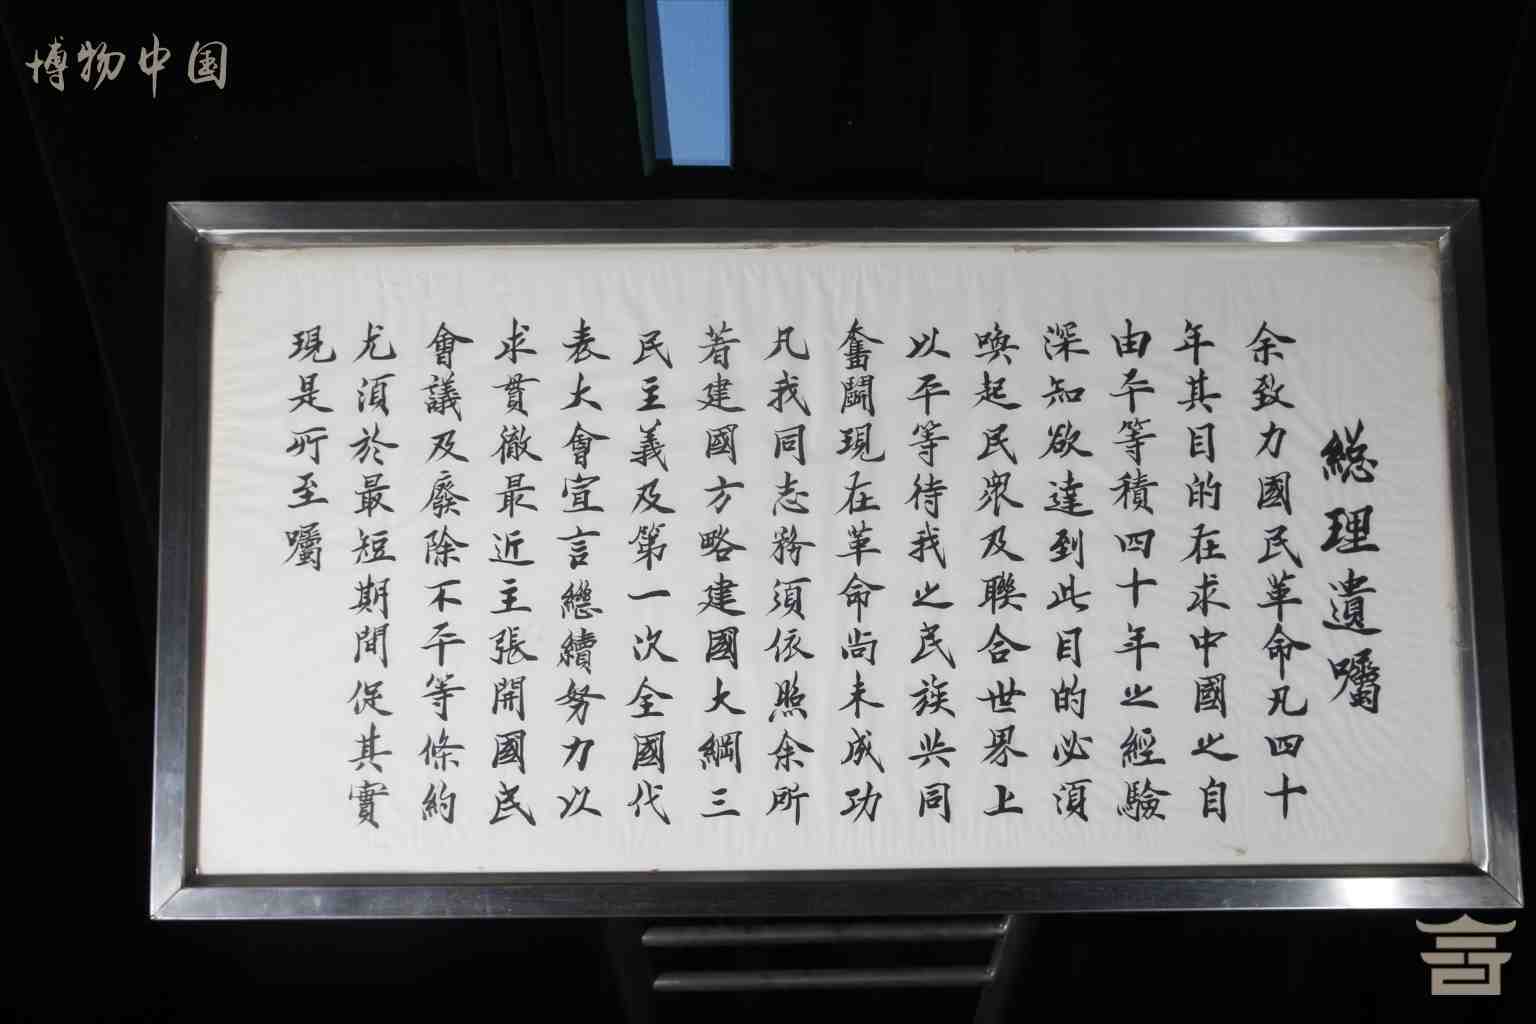 博物中国
總理遺囑
余致力國民革命凡四十
年其目的在求中國之自
由平等積四十年之經驗
深知欲達到此目的必須
喚起民眾及聯合世界上
以平等待我之民族共同
奮鬭現在革命尚未成功
凡我同志務須依照余所
著建國方略建國大綱三
民主義及第一次全國代
表大會宣言繼續努力以
求貫徹最近主張開國民
會議及廢除不平等條約
尤須於最短期間促其實
現是所至囑